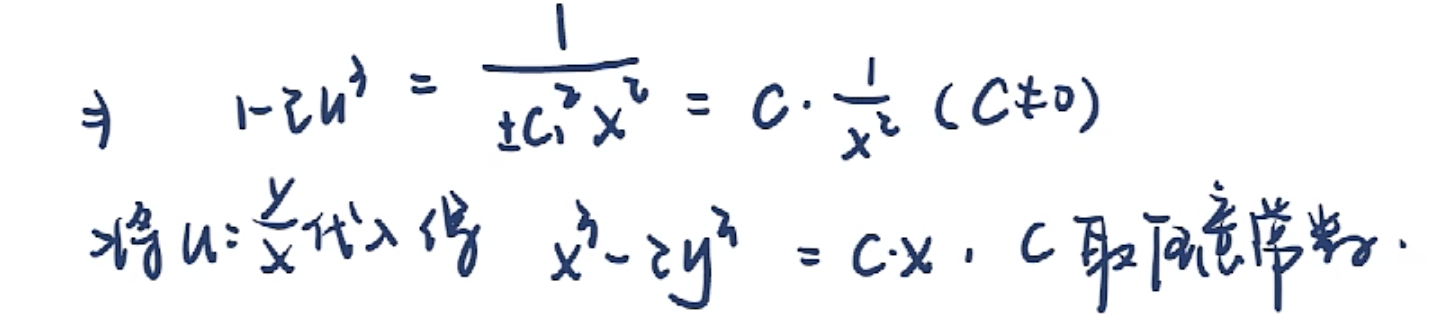 ⇒ 1-2u³ = 1/(±C₁²x²) = C · 1/x² (C≠0)
将 u=y/x 代入得 x³-2y³ = C·x , C 取任意常数.